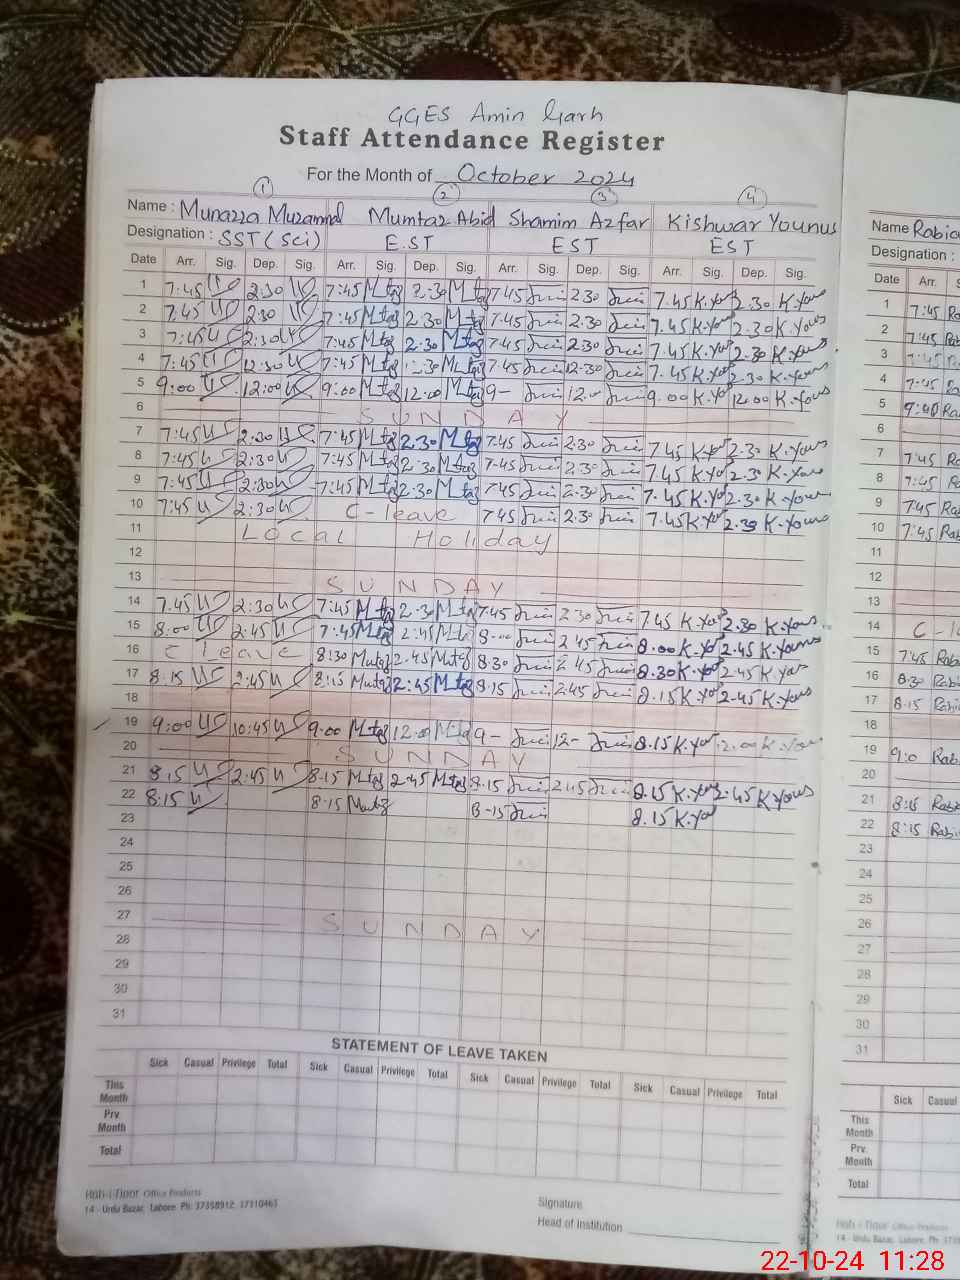 GGES Amin Garh
Staff Attendance Register
For the Month of October 2024
1 2 3 4
Name : Munazza Muzammal Mumtaz Abid Shamim Azfar Kishwar Younus
Designation : SST (Sci) E.ST EST EST
Date Arr. Sig. Dep. Sig. Arr. Sig. Dep. Sig. Arr. Sig. Dep. Sig. Arr. Sig. Dep. Sig.
1 7:45 2:30 7:45 Mtaz 2:30 Mtaz 7.45 2.30 7.45 K.You 2.30 K.Yous
2 7.45 2:30 7:45 Mtaz 2.30 Mtaz 7.45 2.30 7.45 K.You 2.30 K.Yous
3 7:45 2:30 7:45 Mtaz 2.30 Mtaz 7.45 2.30 7.45 K.You 2.30 K.Yous
4 7:45 12:30 7:45 Mtaz Mtaz 7.45 12.30 7.45 K.You 2.30 K.Yous
5 9:00 12:00 9:00 Mtaz 12:00 Mtaz 9- 12.00 9.00 K.You 12.00 K.Yous
6 SUNDAY
7 7:45 2:30 7:45 Mtaz 2.30 Mtaz 7.45 2.30 7.45 K.You 2.30 K.Yous
8 7:45 2:30 7:45 Mtaz 2.30 Mtaz 7.45 2.30 7.45 K.You 2.30 K.Yous
9 7:45 2:30 7:45 Mtaz 2.30 Mtaz 7.45 2.30 7.45 K.You 2.30 K.Yous
10 7:45 2:30 C-leave 7.45 2.30 7.45 K.You 2.30 K.Yous
11 Local Holiday
12
13 SUNDAY
14 7.45 2:30 7:45 Mtaz 2.30 Mtaz 7.45 2.30 7.45 K.You 2.30 K.Yous
15 8:00 2:45 7:45 Mtaz 2:45 Mtaz 8.00 2.45 8.00 K.You 2.45 K.Youns
16 C leave 8:30 Mutaz 2.45 Mtaz 8.30 2.45 8.30 K.You 2.45 K.Yous
17 8.15 2:45 8:15 Mutaz 2:45 Mtaz 8.15 2.45 8.15 K.You 2.45 K.Yous
18
19 9:00 10:45 9.00 Mtaz 12.00 Mtaz 9- 12- 8.15 K.You 2.00 K.You
20 SUNDAY
21 8.15 2:45 8:15 Mtaz 2.45 Mtaz 8.15 2.45 8.15 K.You 2.45 K.Yous
22 8.15 8.15 Mutaz 8-15 8.15 K.You
23
24
25
26
27 SUNDAY
28
29
30
31
STATEMENT OF LEAVE TAKEN
Sick Casual Privilege Total Sick Casual Privilege Total Sick Casual Privilege Total Sick Casual Privilege Total
This Month
Prv. Month
Total
Office Products
14 - Urdu Bazar, Lahore. Ph: 37358912, 37310463
Signature
Head of Institution
Name Rabia
Designation :
Date Arr.
1 7:45
2 7:45
3 7:45
4 7:45
5 9:00
6
7 7:45
8 7:45
9 7:45
10 7:45
11
12
13
14
15 7:45
16 8:30
17 8.15
18
19 9:0
20
21 8:15
22 8:15
23
24
25
26
27
28
29
30
31
Sick Casual
This Month
Prv. Month
Total
22-10-24 11:28